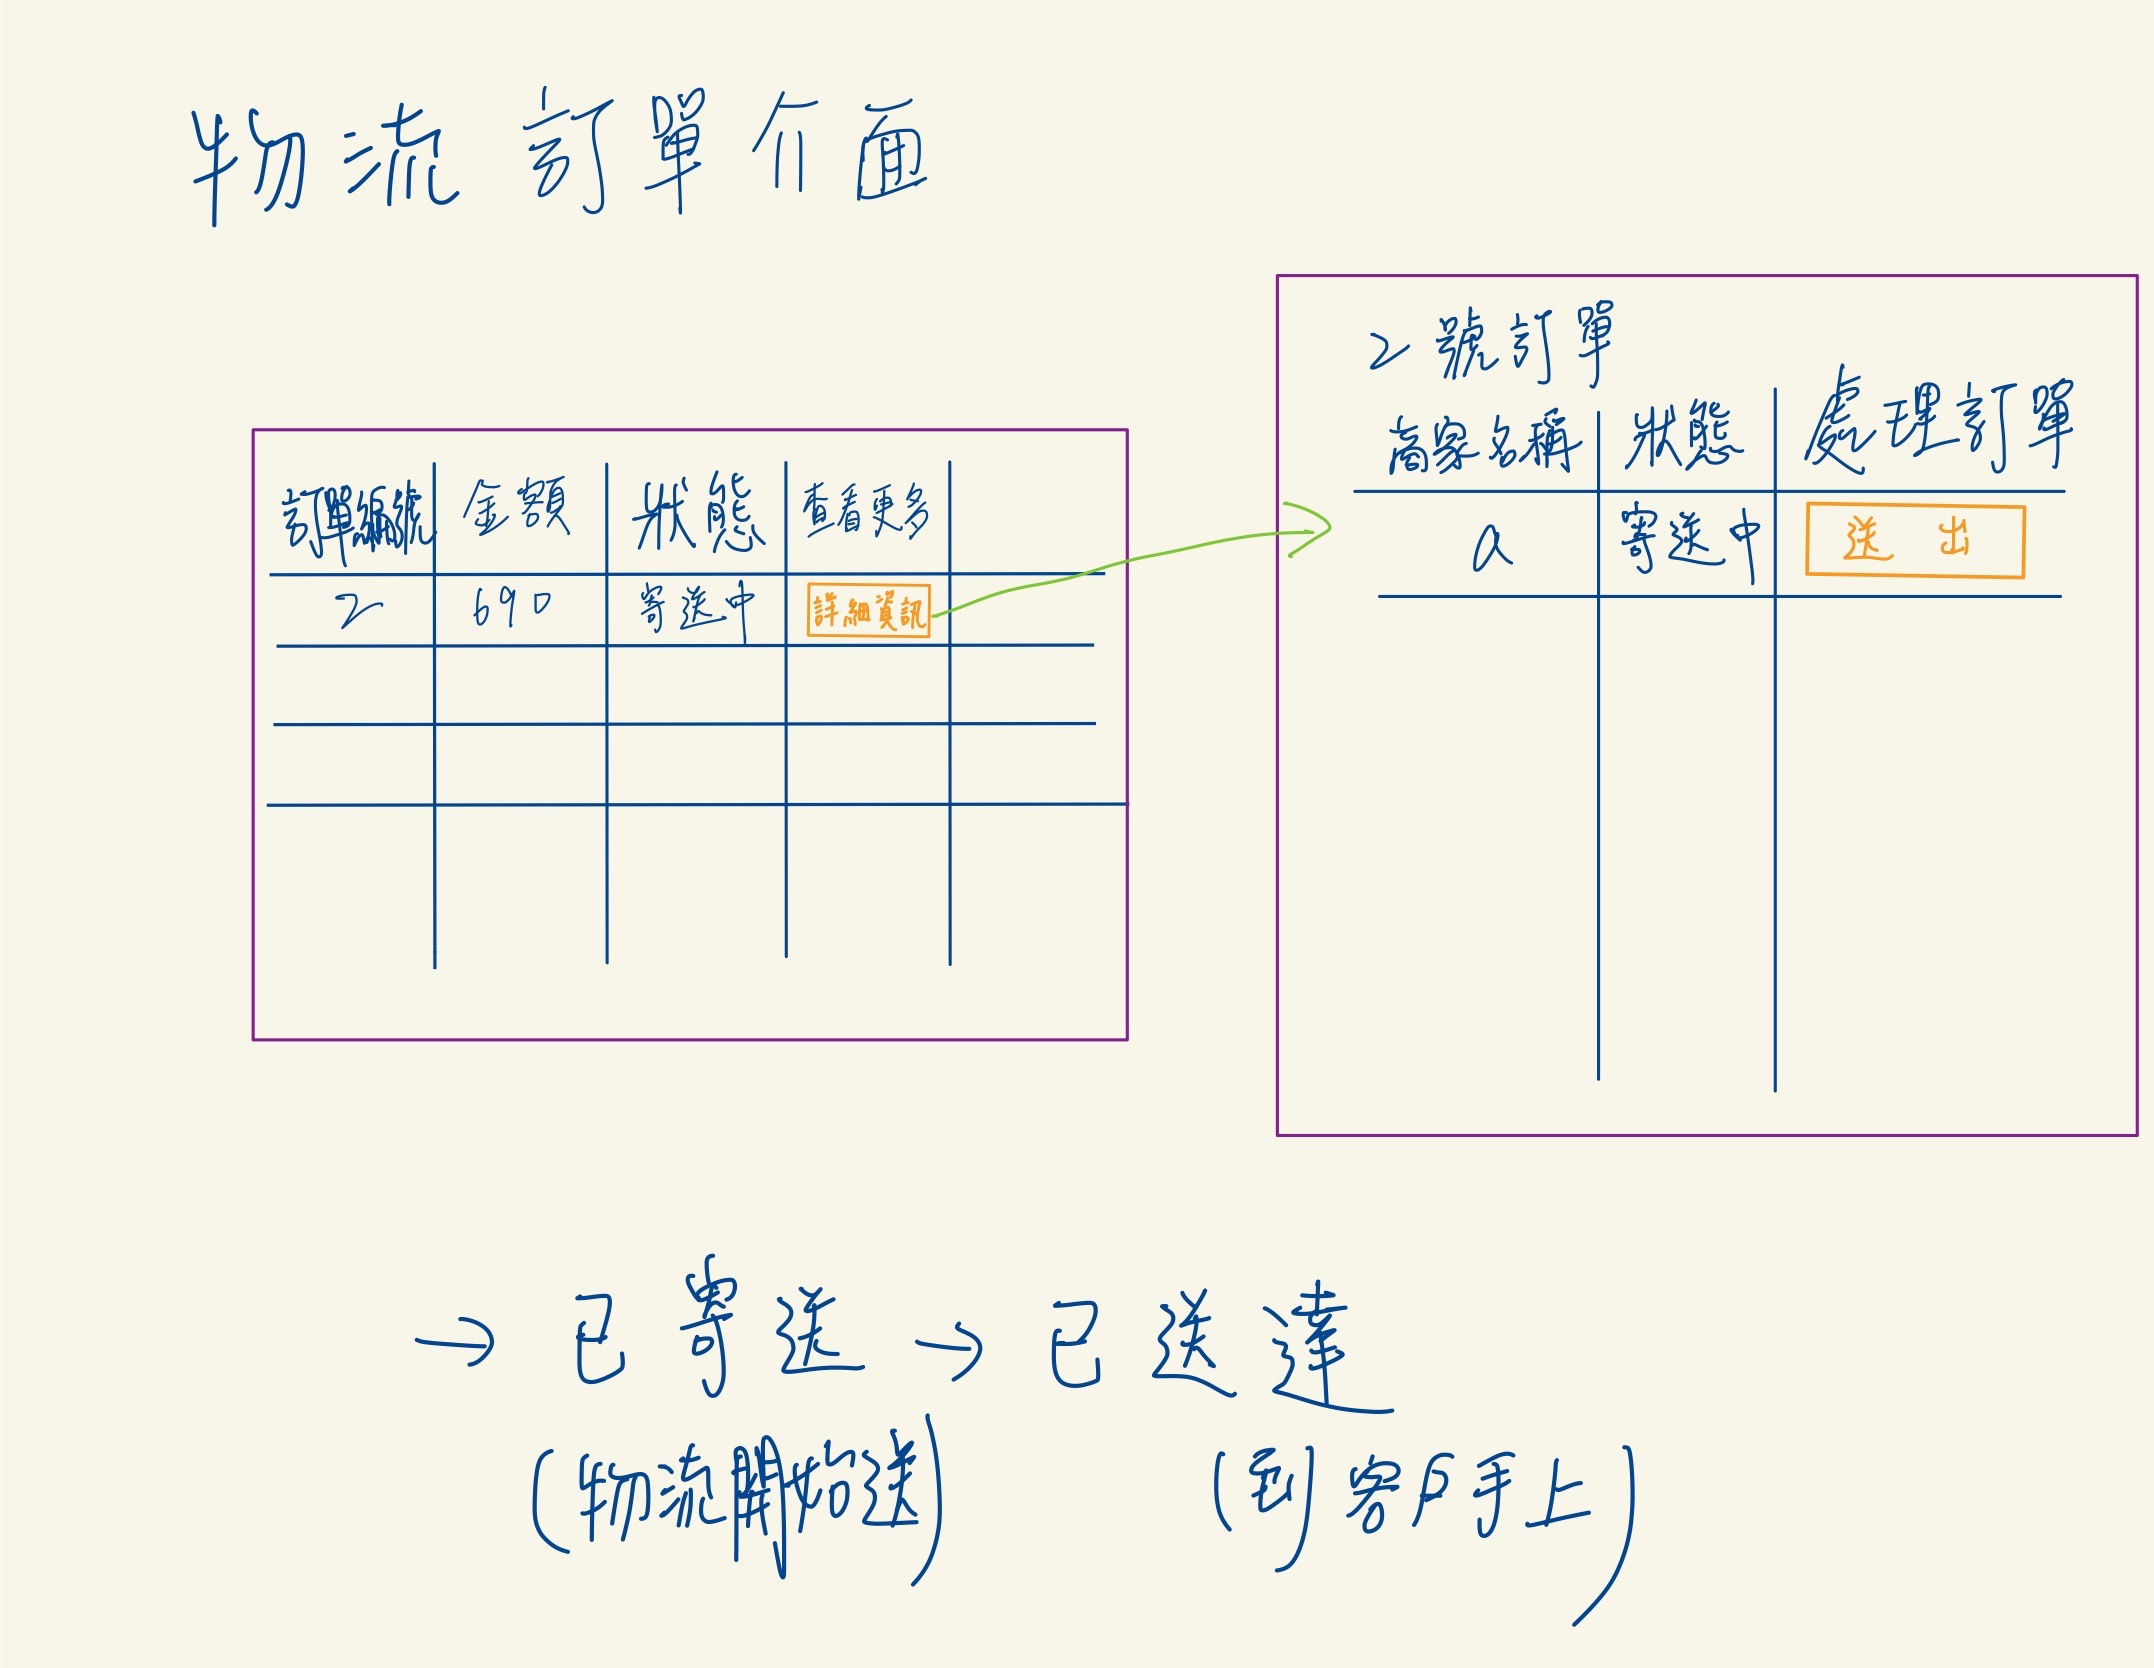 物流 訂單介面
訂單編號 金額 狀態 查看更多
2 690 寄送中 詳細資訊
2號訂單
商家名稱 狀態 處理訂單
a 寄送中 送出
→ 已寄送 → 已送達
(物流開始送) (到客戶手上)